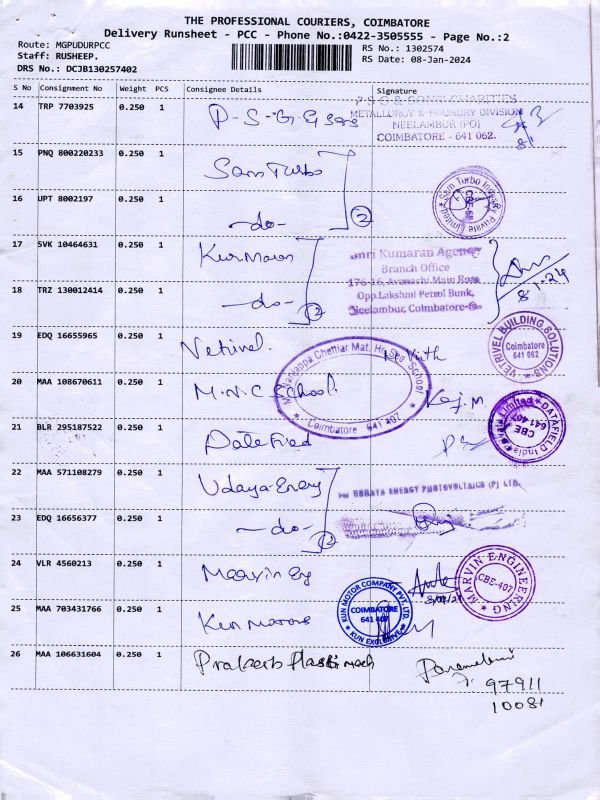 THE PROFESSIONAL COURIERS, COIMBATORE
Delivery Runsheet - PCC - Phone No.:0422-3505555 - Page No.:2
Route: MGPUDURPCC
Staff: RUSHEEP.
DRS No.: DCJB130257402
RS No.: 1302574
RS Date: 08-Jan-2024
S No Consignment No Weight PCS Consignee Details Signature
14 TRP 7703925 0.250 1 P-S-G & Sons
P S G & SONS' CHARITIES
METALLURGY & FOUNDRY DIVISION
NEELAMBUR (PO)
COIMBATORE - 641 062.
15 PNQ 800220233 0.250 1 Sam Turbo
16 UPT 8002197 0.250 1 -do- 2
Sam Turbo Industry Private Limited
CBE-
17 SVK 10464631 0.250 1 Kumaran
18 TRZ 130012414 0.250 1 -do- 2
Shri Kumaran Agency
Branch Office
176-16, Avanashi Main Road
Opp.Lakshmi Petrol Bunk,
Neelambur, Coimbatore-
8-1-24
19 EDQ 16655965 0.250 1 Vetrivel.
VETRIVEL BUILDING SOLUTIONS
Coimbatore
641 062
20 MAA 108670611 0.250 1 M.N.C School
Chettiar Mat. Hr. Sec School
Coimbatore 641 407
21 BLR 295187522 0.250 1 Datefied
DATAFIELD India Private Limited
CBE
641 407
22 MAA 571108279 0.250 1 Udaya Energy
23 EDQ 16656377 0.250 1 -do- 2
For UDHAYA ENERGY PHOTOVOLTAICS (P) LTD.
24 VLR 4560213 0.250 1 Maarvin Eg
MARVIN ENGINEERING
CBE-407
25 MAA 703431766 0.250 1 Kun Motors
KUN MOTOR COMPANY PVT. LTD.
COIMBATORE
641 407
KUN EXCLUSIVE
26 MAA 106631604 0.250 1 Prakash Plastic mech
97911
10081